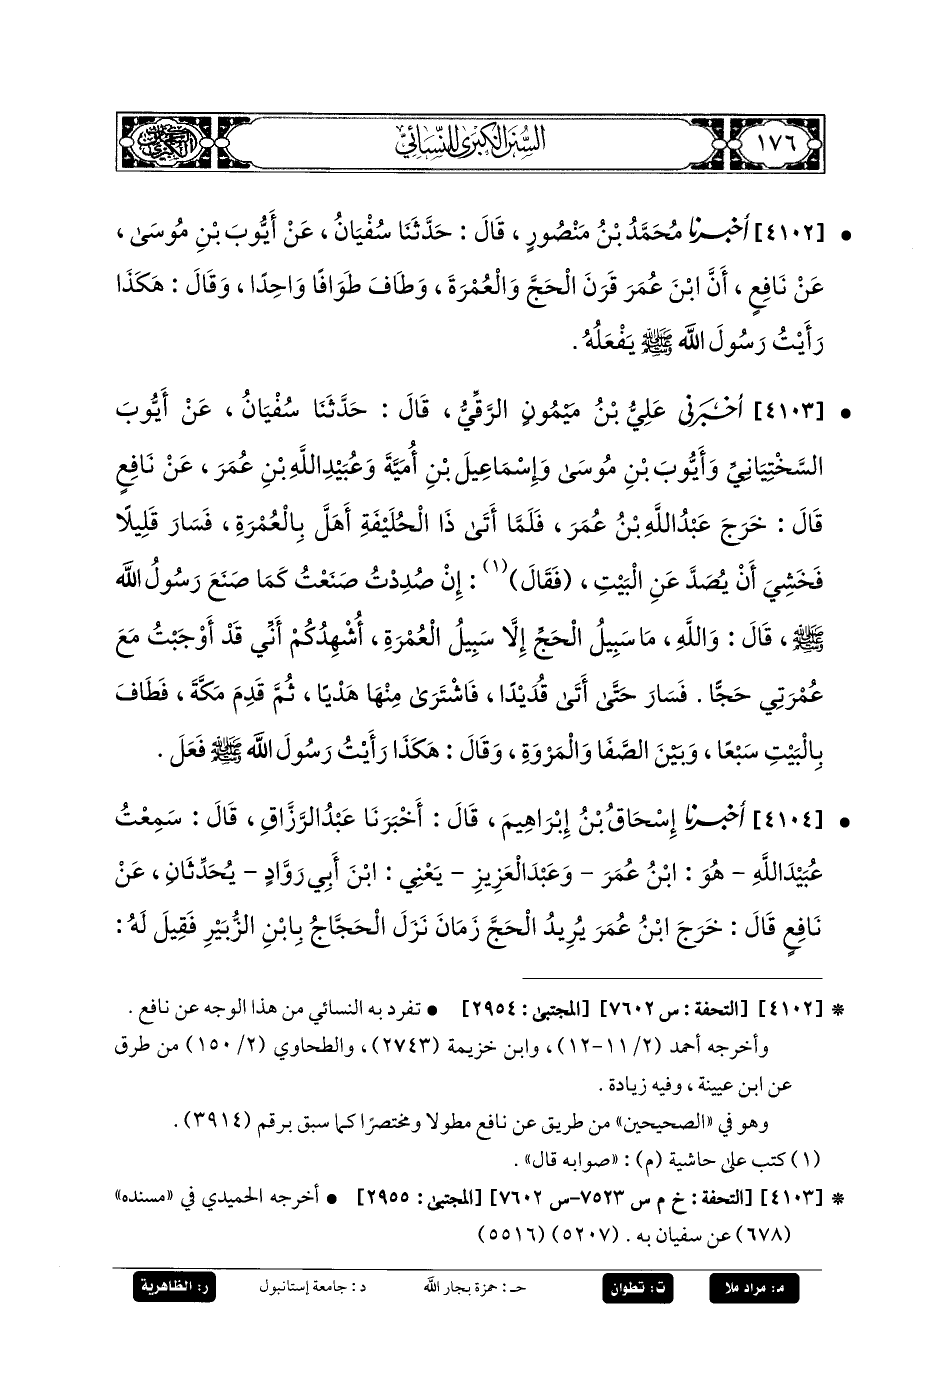 ١٧٦
السُّنَنُ الكِبرىٰ لِلنَّسَائِيِّ
• [٤١٠٢] أخبرنا مُحَمَّدُ بْنُ مَنْصُورٍ ، قَالَ : حَدَّثَنَا سُفْيَانُ ، عَنْ أَيُّوبَ بْنِ مُوسَىٰ ،
عَنْ نَافِعٍ ، أَنَّ ابْنَ عُمَرَ قَرَنَ الْحَجَّ وَالْعُمْرَةَ ، وَطَافَ طَوَافًا وَاحِدًا ، وَقَالَ : هَكَذَا
رَأَيْتُ رَسُولَ اللَّهِ ﷺ يَفْعَلُهُ .
• [٤١٠٣] أخبرني عَلِيُّ بْنُ مَيْمُونٍ الرَّقِّيُّ ، قَالَ : حَدَّثَنَا سُفْيَانُ ، عَنْ أَيُّوبَ
السَّخْتِيَانِيِّ وَأَيُّوبَ بْنِ مُوسَىٰ وَإِسْمَاعِيلَ بْنِ أُمَيَّةَ وَعُبَيْدِاللَّهِ بْنِ عُمَرَ ، عَنْ نَافِعٍ
قَالَ : خَرَجَ عَبْدُاللَّهِ بْنُ عُمَرَ ، فَلَمَّا أَتَىٰ ذَا الْحُلَيْفَةِ أَهَلَّ بِالْعُمْرَةِ ، فَسَارَ قَلِيلًا
فَخَشِيَ أَنْ يُصَدَّ عَنِ الْبَيْتِ ، (فَقَالَ)(١) : إِنْ صُدِدْتُ صَنَعْتُ كَمَا صَنَعَ رَسُولُ اللَّهِ
ﷺ ، قَالَ : وَاللَّهِ ، مَا سَبِيلُ الْحَجِّ إِلَّا سَبِيلُ الْعُمْرَةِ ، أُشْهِدُكُمْ أَنِّي قَدْ أَوْجَبْتُ مَعَ
عُمْرَتِي حَجًّا . فَسَارَ حَتَّىٰ أَتَىٰ قُدَيْدًا ، فَاشْتَرَىٰ مِنْهَا هَدْيًا ، ثُمَّ قَدِمَ مَكَّةَ ، فَطَافَ
بِالْبَيْتِ سَبْعًا ، وَبَيْنَ الصَّفَا وَالْمَرْوَةِ ، وَقَالَ : هَكَذَا رَأَيْتُ رَسُولَ اللَّهِ ﷺ فَعَلَ .
• [٤١٠٤] أخبرنا إِسْحَاقُ بْنُ إِبْرَاهِيمَ ، قَالَ : أَخْبَرَنَا عَبْدُالرَّزَّاقِ ، قَالَ : سَمِعْتُ
عُبَيْدَاللَّهِ - هُوَ : ابْنُ عُمَرَ - وَعَبْدَالْعَزِيزِ - يَعْنِي : ابْنَ أَبِي رَوَّادٍ - يُحَدِّثَانِ ، عَنْ
نَافِعٍ قَالَ : خَرَجَ ابْنُ عُمَرَ يُرِيدُ الْحَجَّ زَمَانَ نَزَلَ الْحَجَّاجُ بِابْنِ الزُّبَيْرِ فَقِيلَ لَهُ :
* [٤١٠٢] [التحفة : س ٧٦٠٢] [المجتبىٰ : ٢٩٥٤] • تفرد به النسائي من هذا الوجه عن نافع .
وأخرجه أحمد (٢/ ١١-١٢) ، وابن خزيمة (٢٧٤٣) ، والطحاوي (٢/ ١٥٠) من طرق
عن ابن عيينة ، وفيه زيادة .
وهو في «الصحيحين» من طريق عن نافع مطولا ومختصرًا كما سبق برقم (٣٩١٤) .
(١) كتب على حاشية (م) : «صوابه قال» .
* [٤١٠٣] [التحفة : خ م س ٧٥٢٣-س ٧٦٠٢] [المجتبىٰ : ٢٩٥٥] • أخرجه الحميدي في «مسنده»
(٦٧٨) عن سفيان به . (٥٢٠٧) (٥٥١٦)
م: مراد ملا ت: تطوان حـ: حمزة بجار الله د: جامعة إستانبول ر: الظاهرية